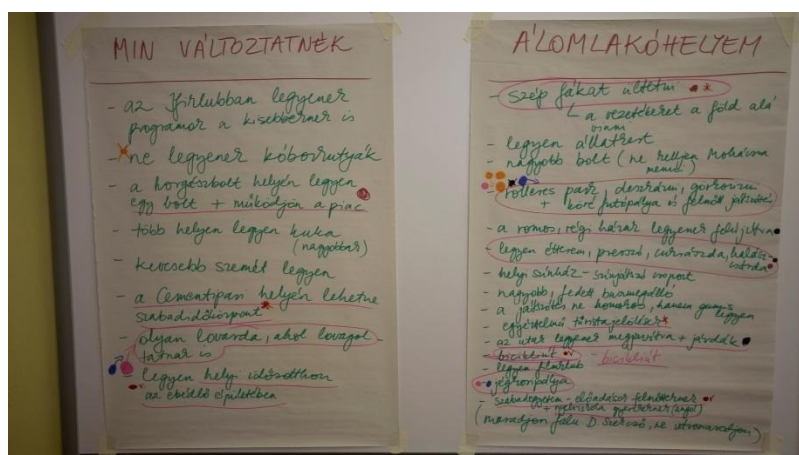 MIN VÁLTOZTATNÉK
- az Ifiklubban legyenek
programok a kisebbeknek is
- ne legyenek kóborkutyák
- a horgászbolt helyén legyen
egy bolt + működjön a piac
- több helyen legyen kuka
(nagyobbak)
- kevesebb szemét legyen
- a Cementipari helyén lehetne
szabadidőközpont
- olyan lovarda, ahol lovagol-
tatnak is
- legyen helyi idősotthon
az ebédlő épületében
ÁLOMLAKÓHELYEM
- szép fákat ültetni
a vezetékeket a föld alá
- legyen állatkert
- nagyobb bolt (ne kelljen Mohácsra
menni)
- rolleres park, deszkázni, gorkorizni
+ köré futópálya és felnőtt játszótér
- a romos, régi házak legyenek felújítva
- legyen étterem, presszó, cukrászda, halász-
csárda
- helyi színház - színjátszó csoport
- nagyobb, fedett buszmegálló
- a játszótér ne homokos, hanem gumis
legyen
- egyértelmű túristajelölések
- az utak legyenek megjavítva + járdák
- bicikliút - bicikliút
- legyen filmklub
- jégkoripálya
- szabadegyetem - előadások felnőtteknek
+ nyelviskola gyerekeknek (angol)
(maradjon falu D. Szekcső, ne városiasodjon)